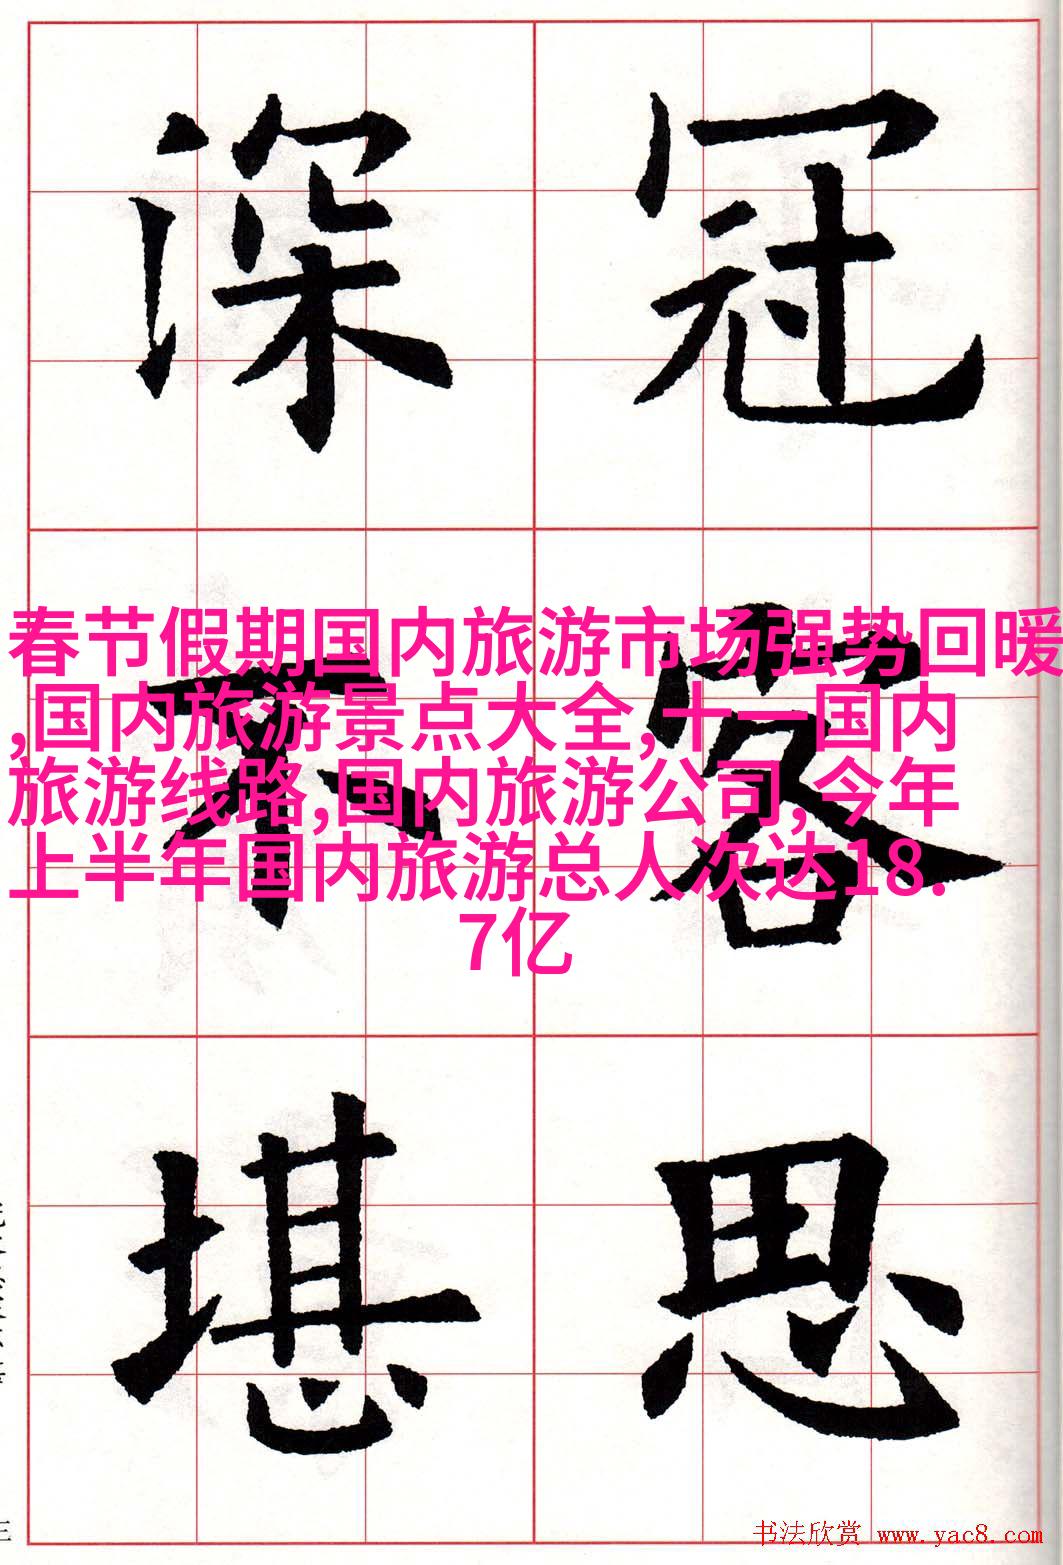 冠客思
深不堪
春节假期国内旅游市场强势回暖
,国内旅游景点大全,十一国内
旅游线路,国内旅游公司,今年
上半年国内旅游总人次达18.
7亿
书法欣赏 www.yac8.com